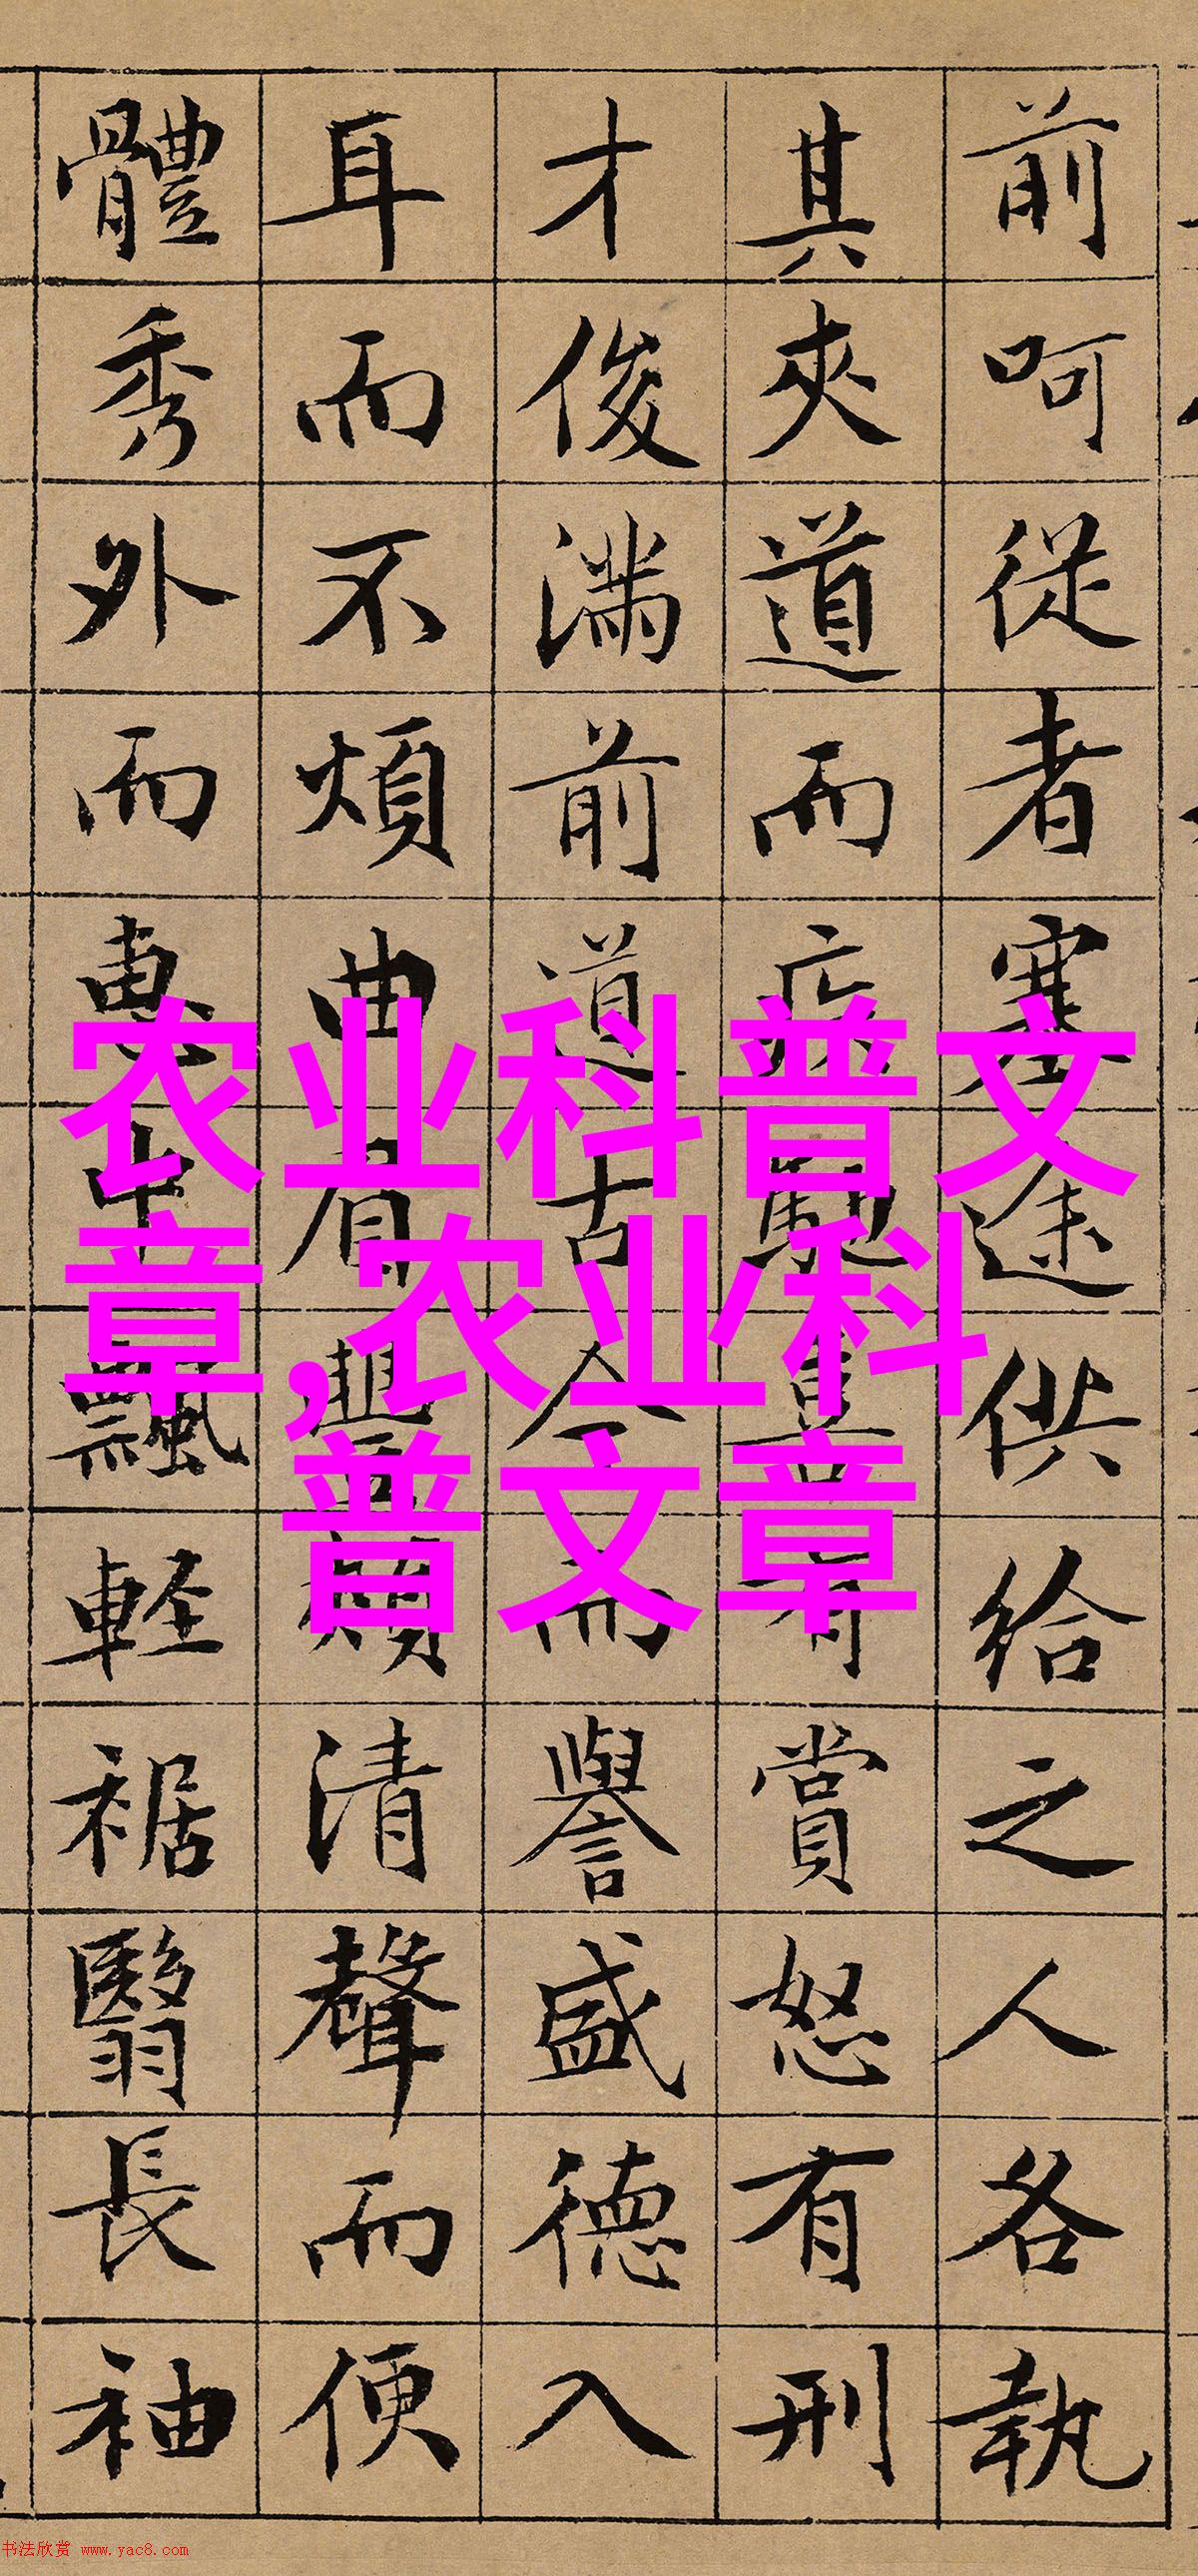 前呵從者塞途供給之人各執
其夾道而疾馳喜有賞怒有刑
才俊滿前道古今而譽盛德入
耳而不煩曲眉豐頰清聲而便
體秀外而惠中飄輕裾翳長袖
农业科普文
章,农业科
普文章
书法欣赏 www.yac8.com